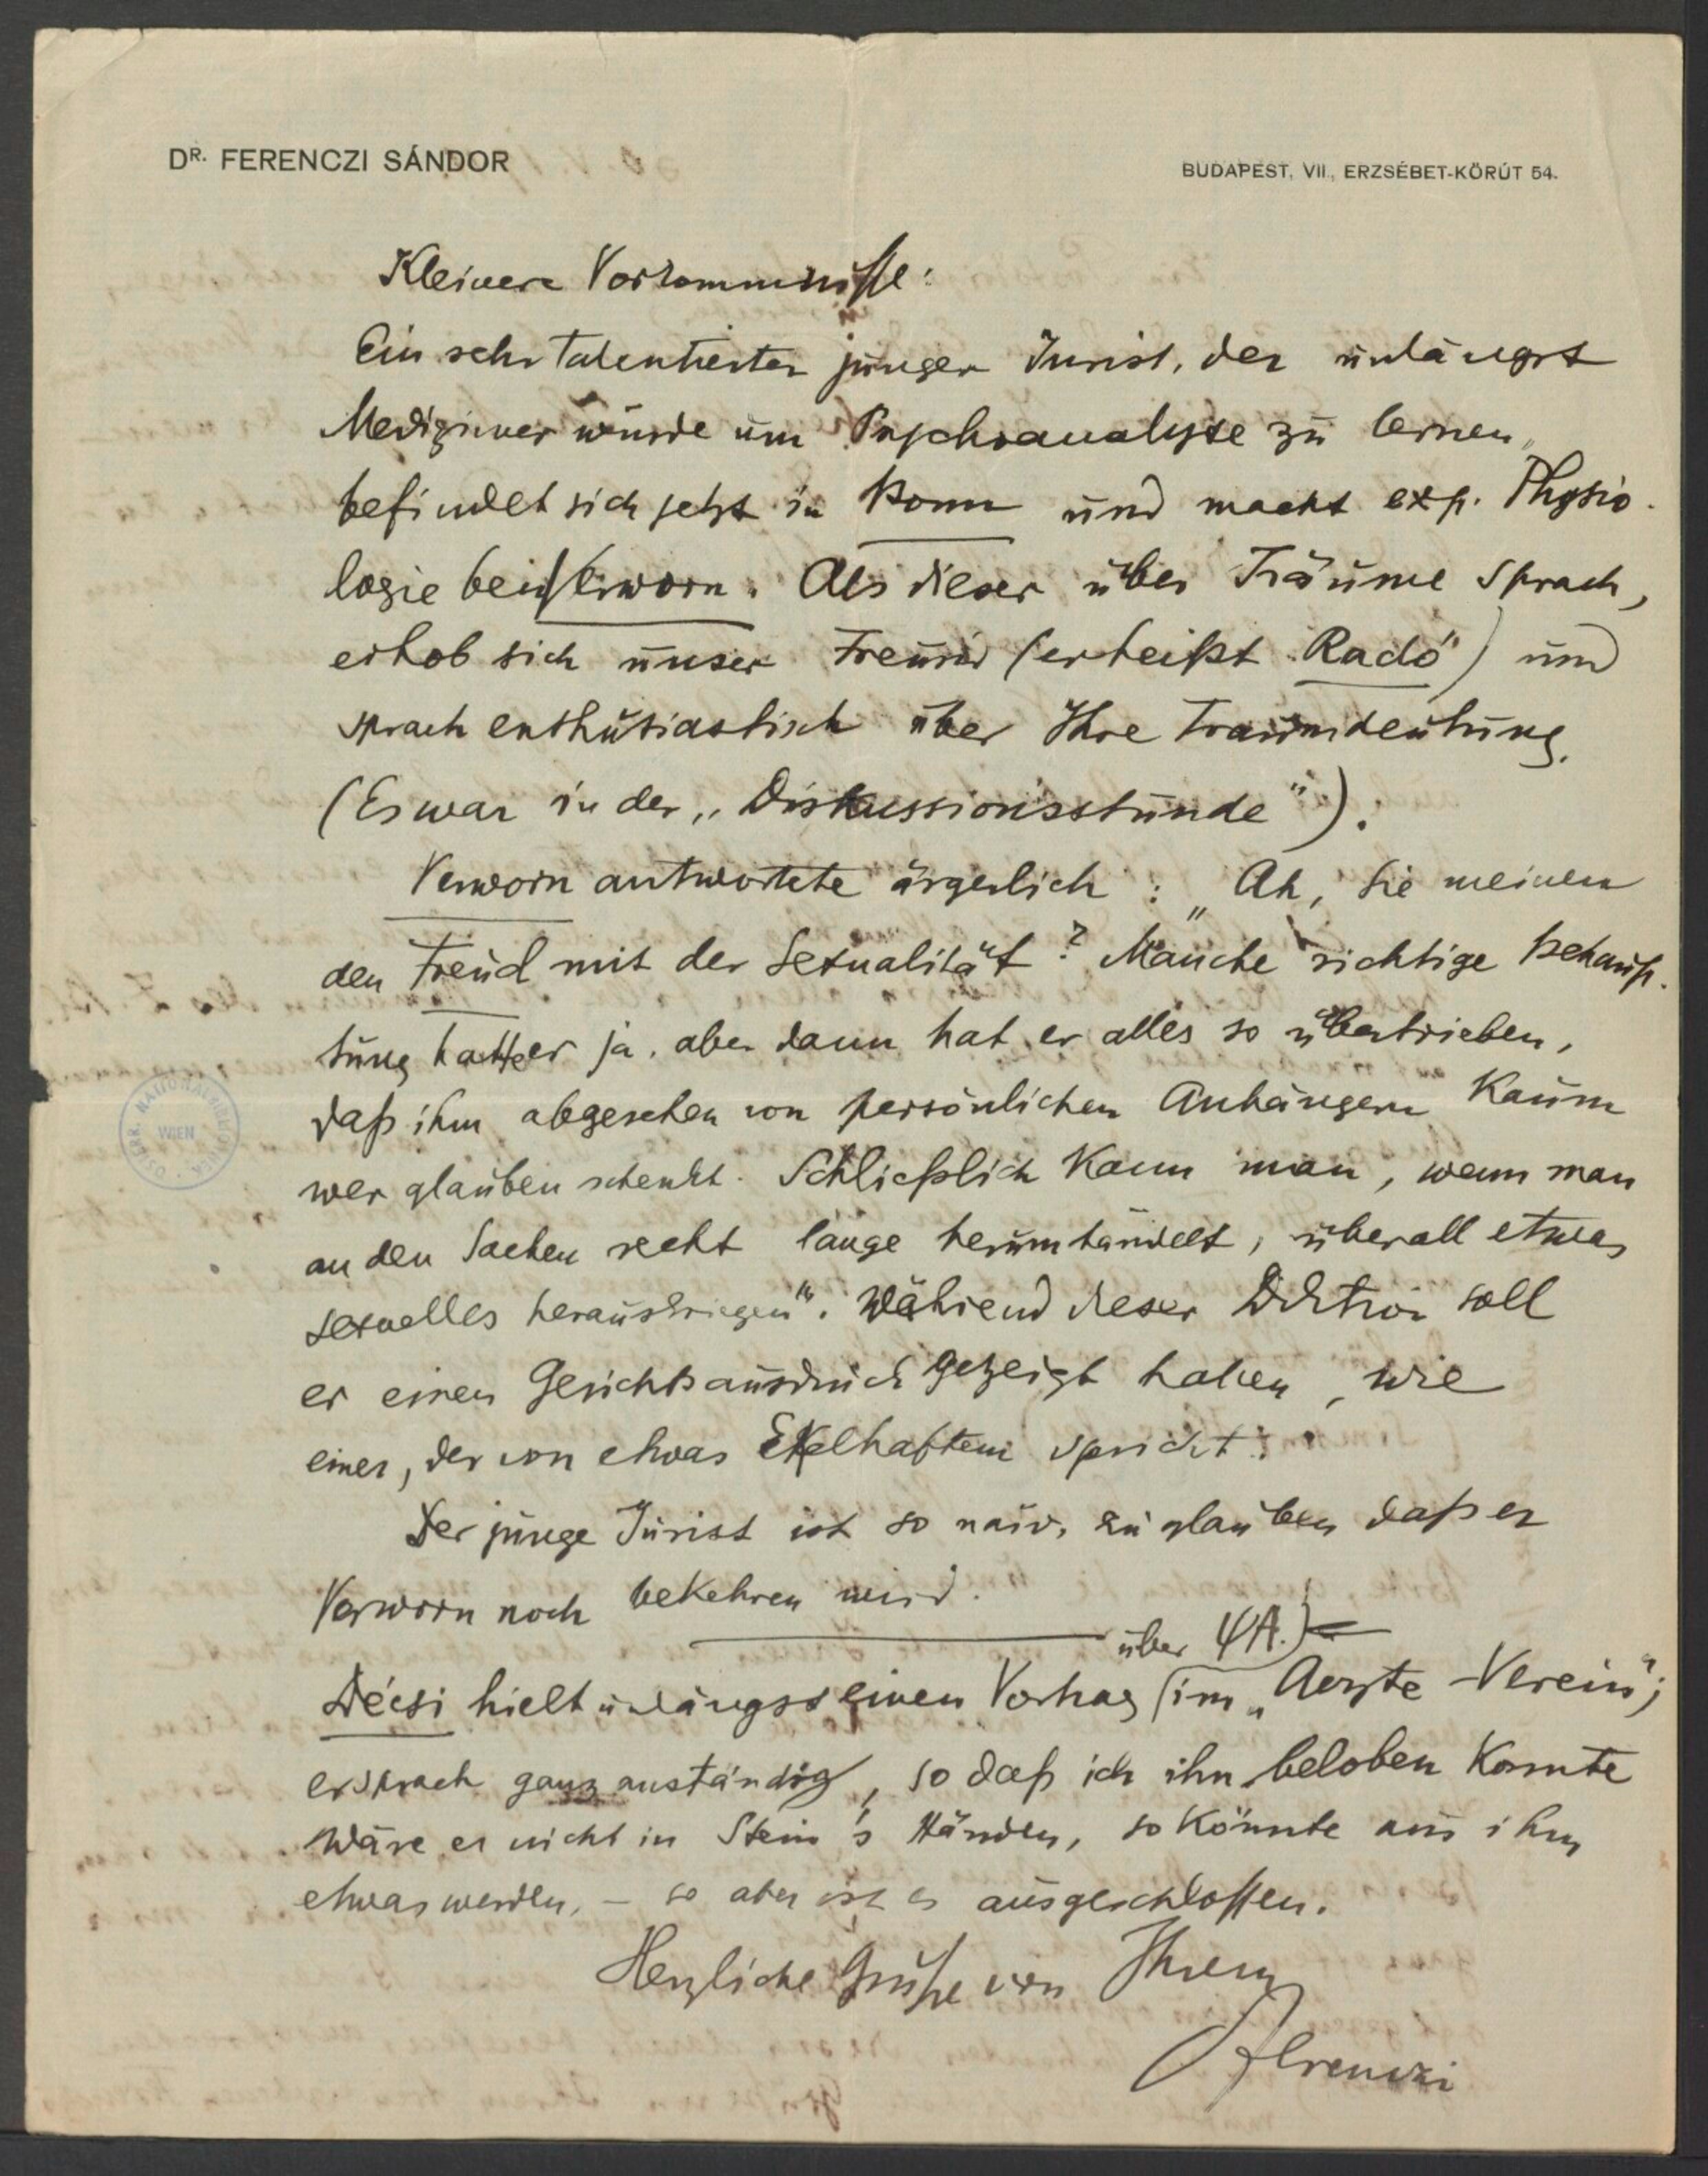 DR. FERENCZI SÁNDOR
BUDAPEST, VII., ERZSÉBET-KÖRÚT 54.
Kleinere Vorkommnisse:
Ein sehr talentierter junger Jurist, der unlängst
Mediziner wurde um Psychoanalyse zu lernen,
befindet sich jetzt in Bonn und macht exp. Physio-
logie bei Verworn. Als dieser über Träume sprach,
erhob sich unser Freund (er heißt Radó) und
sprach enthusiastisch über Ihre Traumdeutung.
(Es war in der „Diskussionsstunde“).
Verworn antwortete ärgerlich: „Ah, Sie meinen
den Freud mit der Sexualität? Manche richtige Behaup-
tung hatte er ja, aber dann hat er alles so übertrieben,
daß ihm abgesehen von persönlichen Anhängern kaum
wer glauben schenkt. Schließlich kann man, wenn man
an den Sachen recht lange herumhandelt, überall etwas
sexuelles herauskriegen“. Während dieser Diktion soll
er einen Gesichtsausdruck gezeigt haben, wie
einer, der von etwas Ekelhaftem spricht.
Der junge Jurist ist so naiv, zu glauben daß er
Verworn noch bekehren wird.
über ΨA.)
Décsi hielt unlängst einen Vortrag (im „Aerzte-Verein“;
er sprach ganz anständig, so daß ich ihn beloben konnte
Wäre er nicht in Stein's Händen, so könnte aus ihm
etwas werden, – so aber ist es ausgeschlossen.
Herzliche Grüße von Ihrem
Ferenczi
ÖSTERR. NATIONALBIBLIOTHEK
WIEN